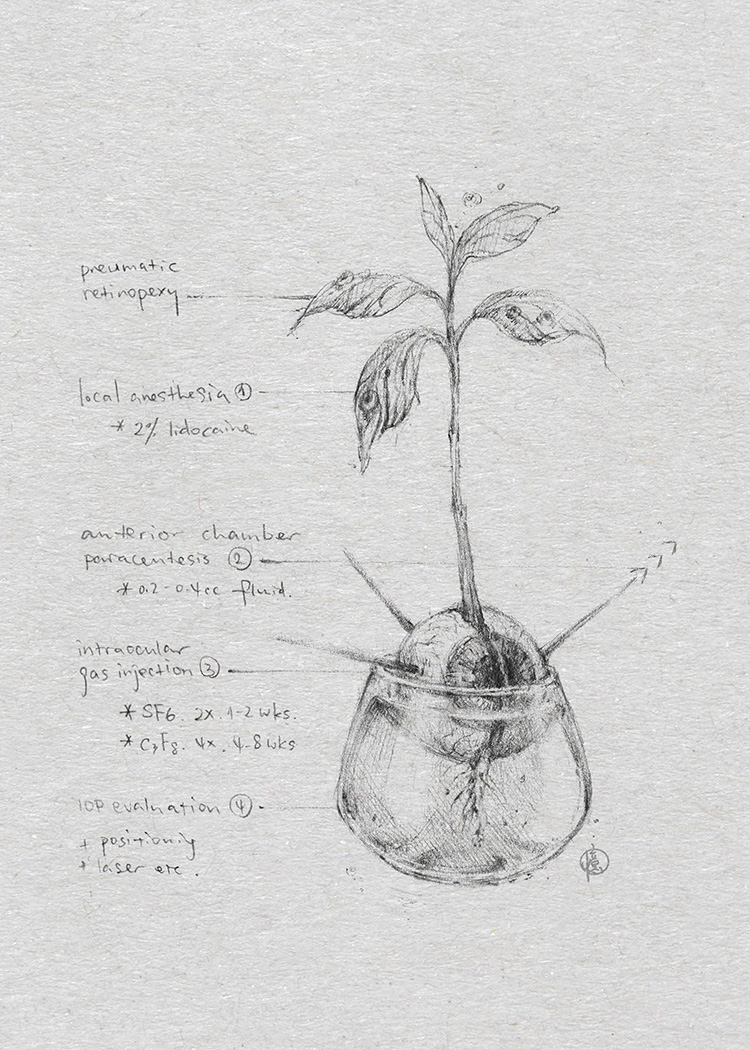 pneumatic
retinopexy
local anesthesia ①
* 2% lidocaine
anterior chamber
paracentesis ②
* 0.2-0.4cc fluid.
intraocular
gas injection ③
* SF6. 2x. 1-2 wks.
* C3F8. 4x. 4-8 wks
IOP evaluation ④
+ positioning
+ laser etc.